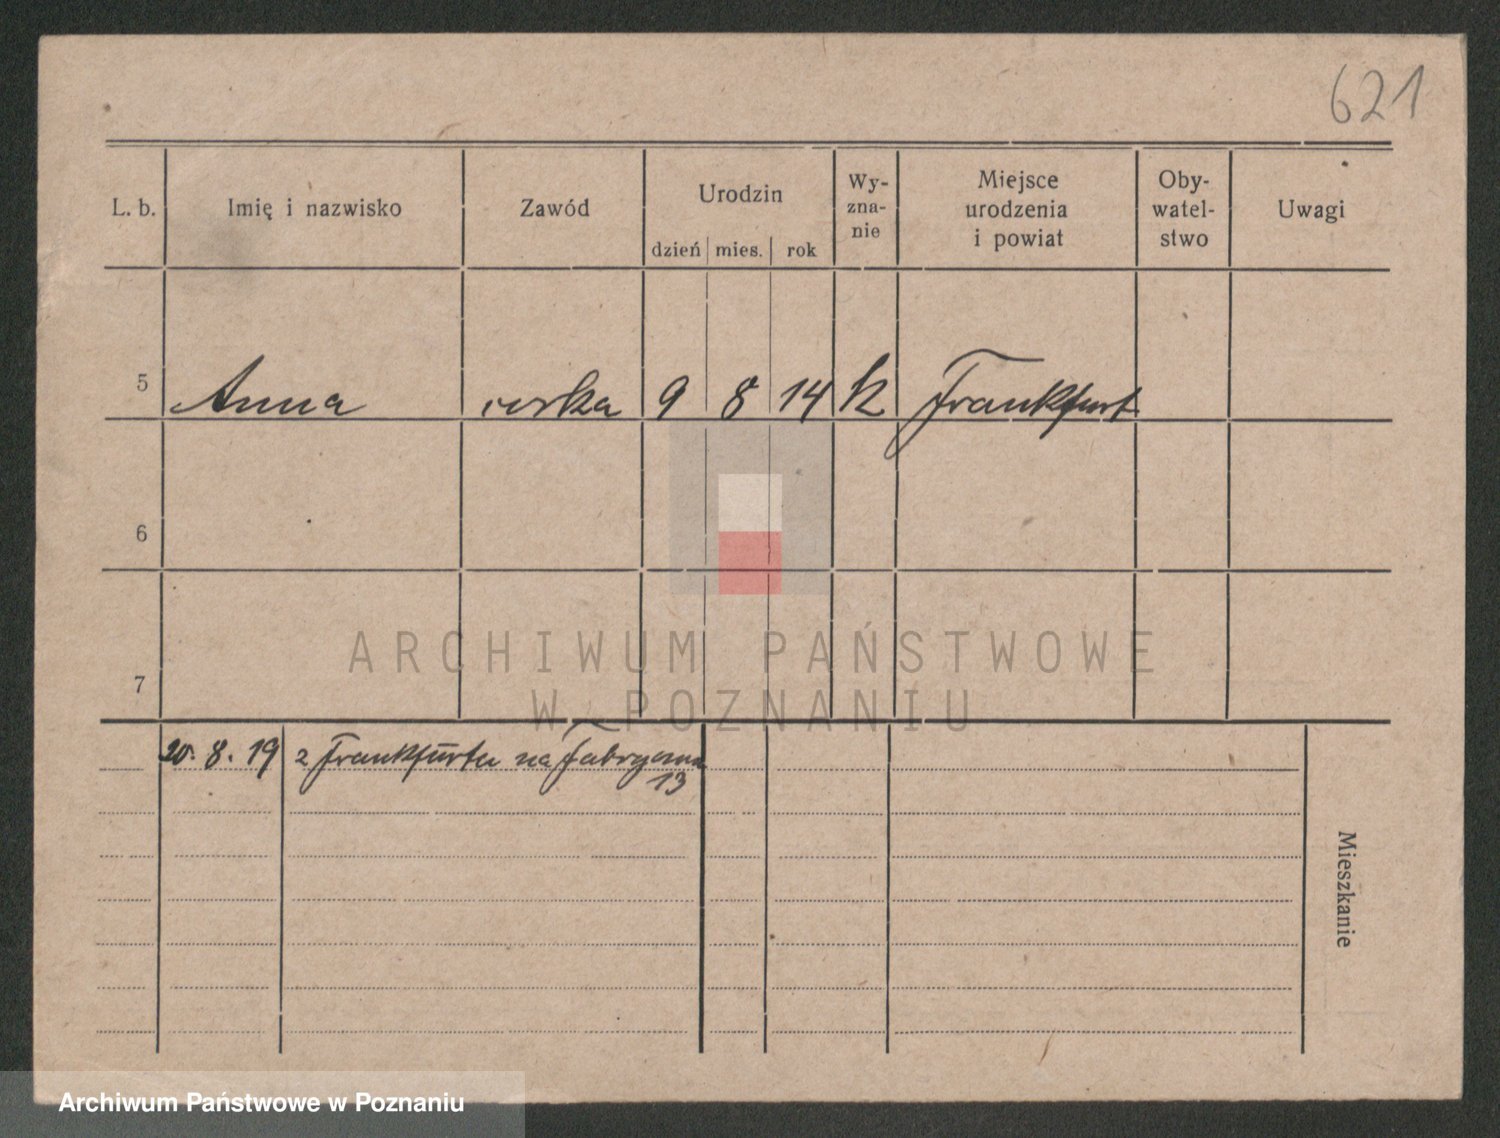 621
L. b. Imię i nazwisko Zawód Urodzin Wy- Miejsce Oby- Uwagi
zna- urodzenia watel-
dzień mies. rok nie i powiat stwo
5 Anna corka 9 8 14 k Frankfurt
6
7
20. 8. 19 z Frankfurtu na Fabryczna
13
Mieszkanie
ARCHIWUM PAŃSTWOWE
W POZNANIU
Archiwum Państwowe w Poznaniu